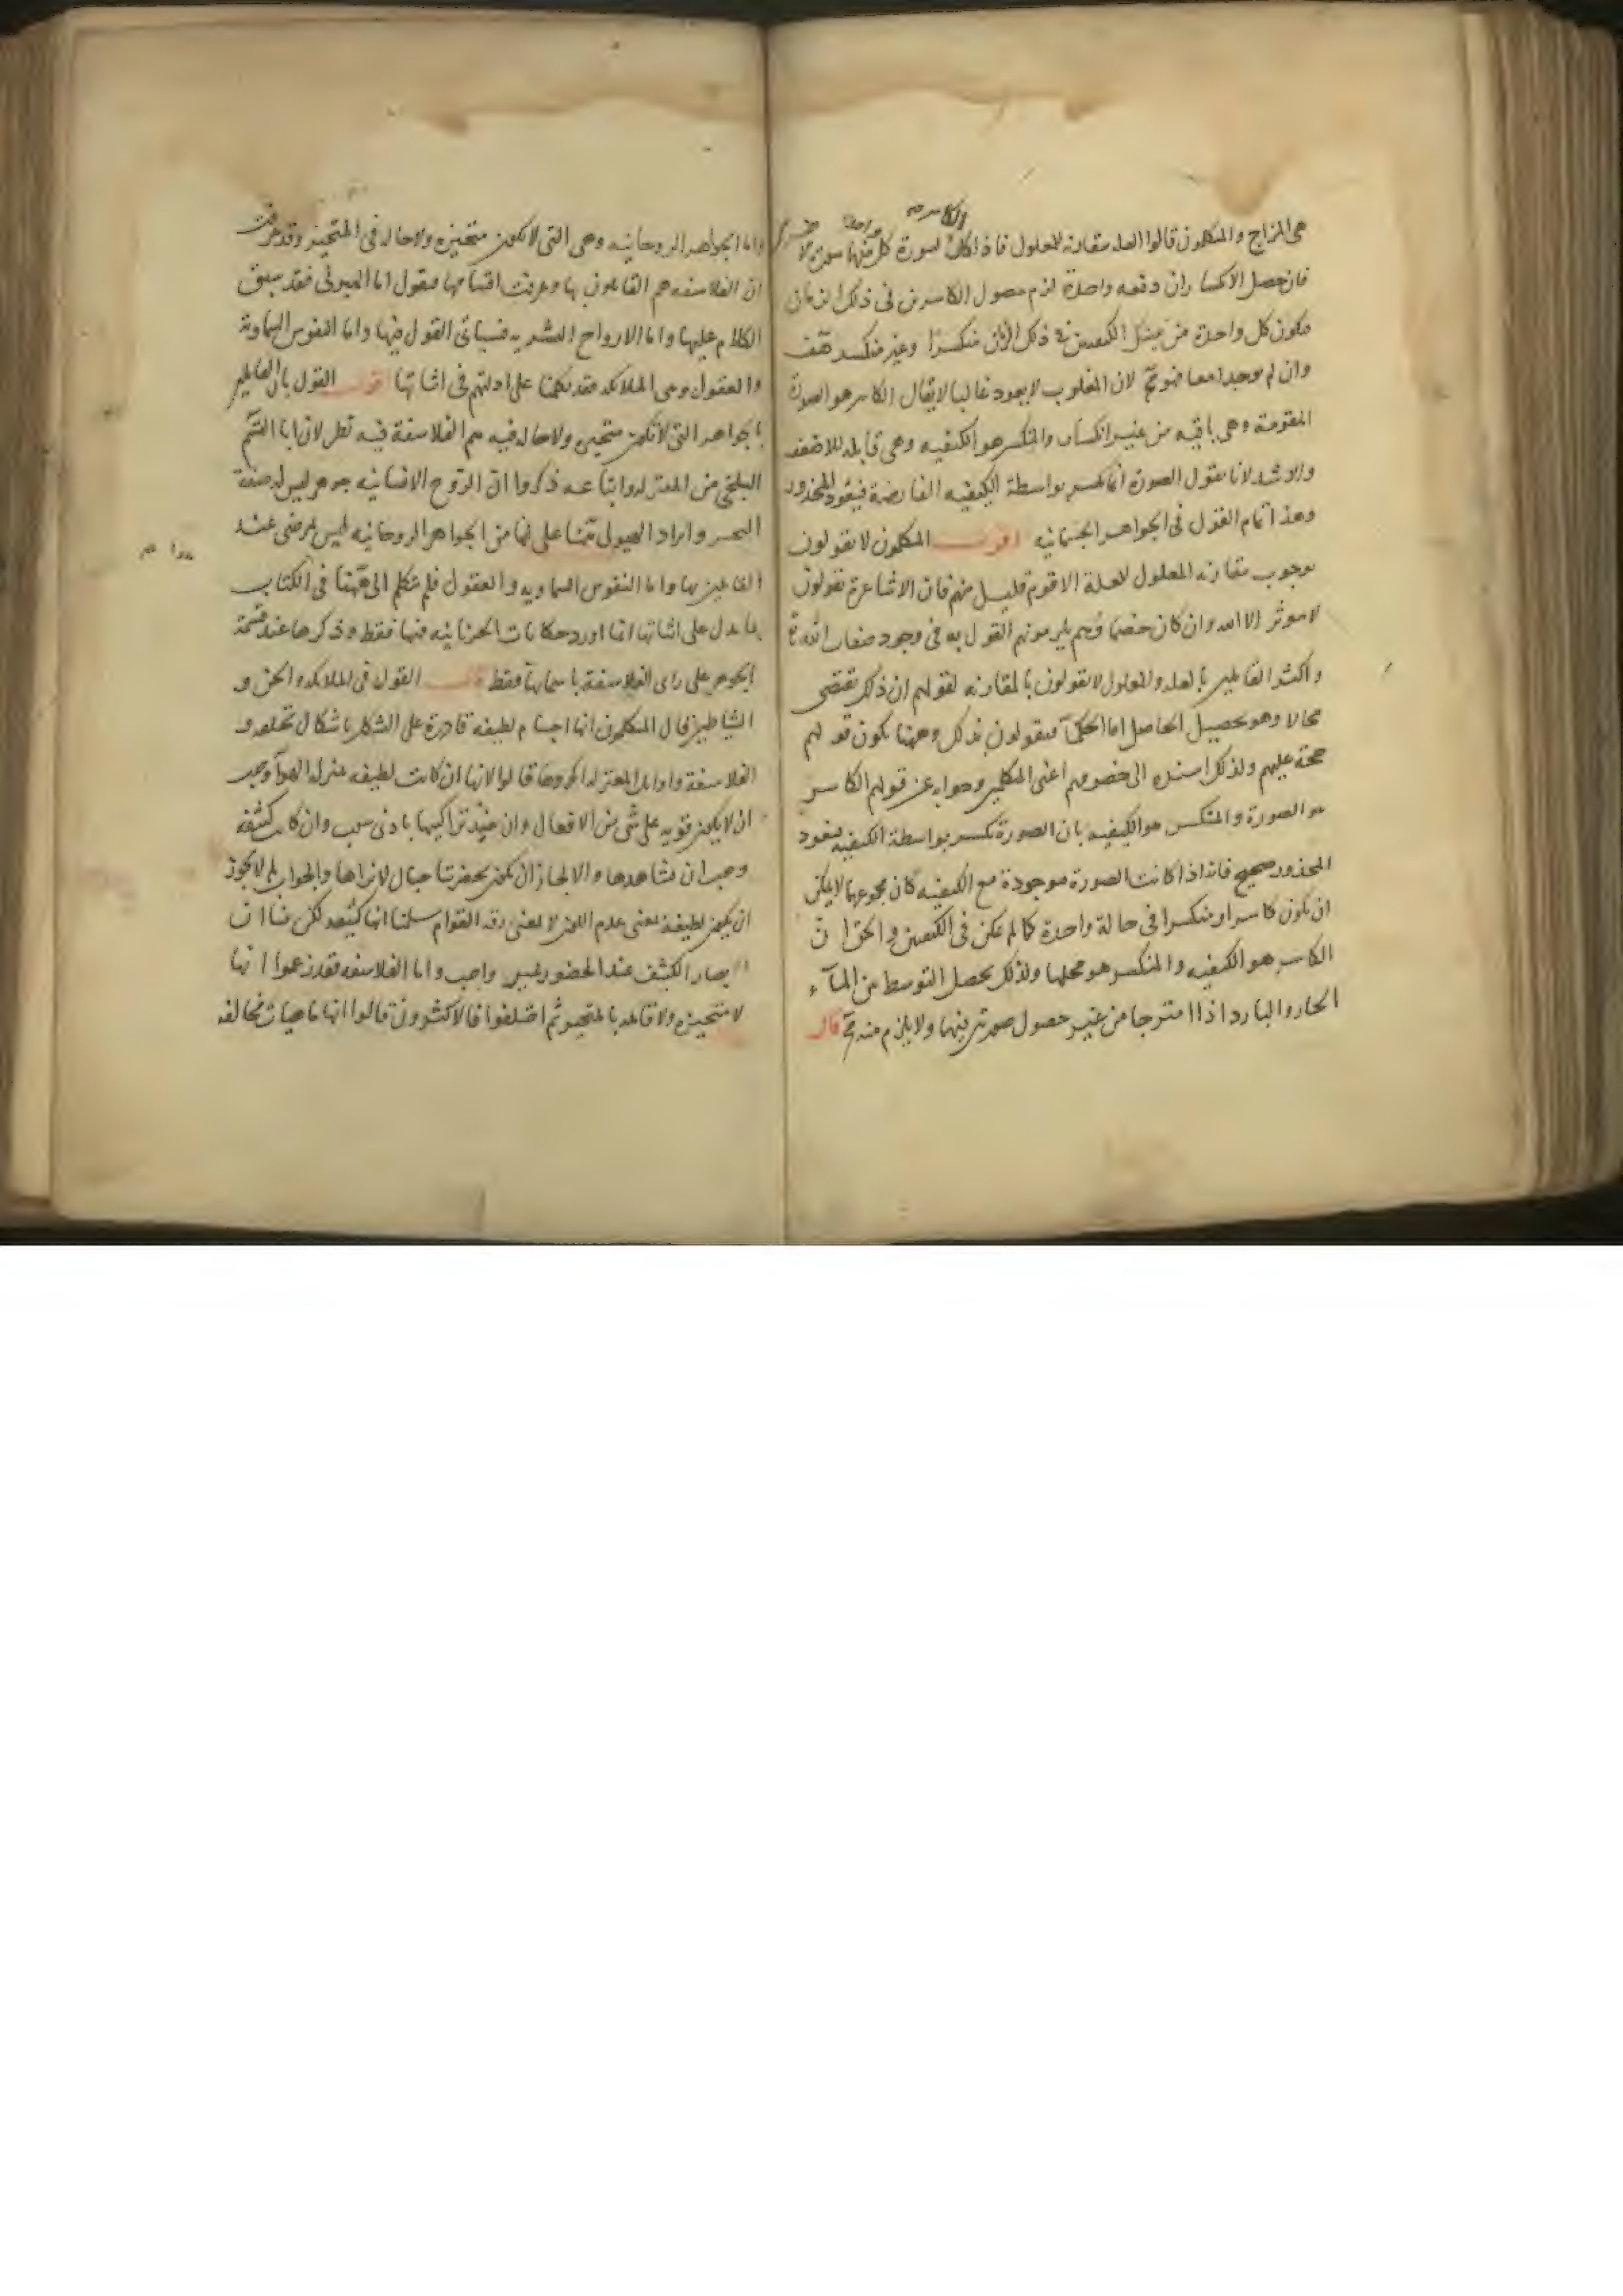 هى المزاج والمتكلمون قالوا العله مقارنه للمعلول فاذا كان لسورة كل منهما سورة الا
فان حصل الانكساران دفعه واحدة لزم حصول الكاسرين فى ذلك الزمان
فيكون كل واحدة من تينك الكيفيتين فى ذلك الزمان منكسرا وغير منكسر هف
وان لم يوجدا معا فهو مح لان المغلوب لا يعود غالبا لا يقال الكاسر هو الصورة
المقومة وهى باقيه من غير انكسار والمنكسر هو الكيفيه وهى قابله للاضعف
والاشد لانا نقول الصورة انما تكسر بواسطة الكيفيه الفايضة فيعود المحذور
وهذا تمام القول فى الجواهر الجسمانيه اقول المتكلمون لا يقولون
بوجوب مقارنه المعلول للعلة الا قوم قليل منهم فان الاشاعرة يقولون
لا موثر الا الله وان كان خصماوهم يلزمونهم القول به فى وجود صفات الله تع
واكثر القايلين بالعله والمعلول لا يقولون بالمقارنه لقولهم ان ذلك يقتضى
محالا وهو تحصيل الحاصل اما الحكماء فيقولون بذلك وههنا يكون قولهم
حجة عليهم ولذلك اسنده الى خصومهم اعنى المتكلمين وجوابه عن قولهم الكاسر
هو الصورة والمنكسر هو الكيفيه بان الصورة تكسر بواسطة الكيفيه فيعود
المحذور صحيح فانه اذا كانت الصورة موجودة مع الكيفيه كان مجموعهما لا يمكن
ان يكون كاسرا ومنكسرا فى حالة واحدة كما لم يمكن فى الكيفيتين والحق ان
الكاسر هو الكيفيه والمنكسر هو محلها ولذلك يحصل التوسط من الماء
الحار والبارد اذا امتزجا من غير حصول صورتين فيهما ولا يلزم منه مح قال
واما الجواهر الروحانيه وهى التى لا تكون متحيزه ولا حاله فى المتحيز وقد عرفت
ان الفلاسفه هم القايلون بها وعرفت اقسامها فنقول اما الهيولى فقد سبق
الكلام عليها واما الارواح البشريه فسياتى القول فيها واما النفوس السماويه
والعقول وهى الملائكه فقد تكلمنا على ادلتهم فى اثباتها اقول القول بان القايلين
بالجواهر التى لا تكون متحيزه ولا حاله فيه هم الفلاسفة فيه نظر لان ابا القسم
البلخى من المعتزله واتباعه ذكروا ان الروح الانسانيه جوهر ليس له صفة
التحيز وايراد الهيولى ههنا على انها من الجواهر الروحانيه ليس بمرضى عند
القايلين بها واما النفوس السماويه والعقول فلم يتكلم الى ههنا فى الكتاب
بما يدل على اثباتها انما اورد حكايات الحرنانيه فيها فقط وذكرها عند قسمة
الجوهر على راى الفلاسفة باسمايها فقط قال القول فى الملائكه والجن و
الشياطين قال المتكلمون انها اجسام لطيفة قادرة على التشكل باشكال مختلفه و
الفلاسفة واوايل المعتزله انكروها قالوا لانها ان كانت لطيفه بمنزله الهواء وجب
ان لا يكون قويه على شى من الافعال وان يفسد تراكيبها بادنى سبب وان كانت كثيفه
وجب ان نشاهدها والا لجاز ان يكون بحضرتنا جبال لا نراها والجواب لم لا يجوز
ان يكون لطيفة بمعنى عدم اللون لا بمعنى رقه القوام سلمنا انها كثيفه لكن بينا ان
ابصار الكثيف عند الحضور غير واجب واما الفلاسفه فقد زعموا انها
لا متحيزه ولا قايمه بالمتحيز ثم اختلفوا فالاكثرون قالوا انها ماهيات مخالفه